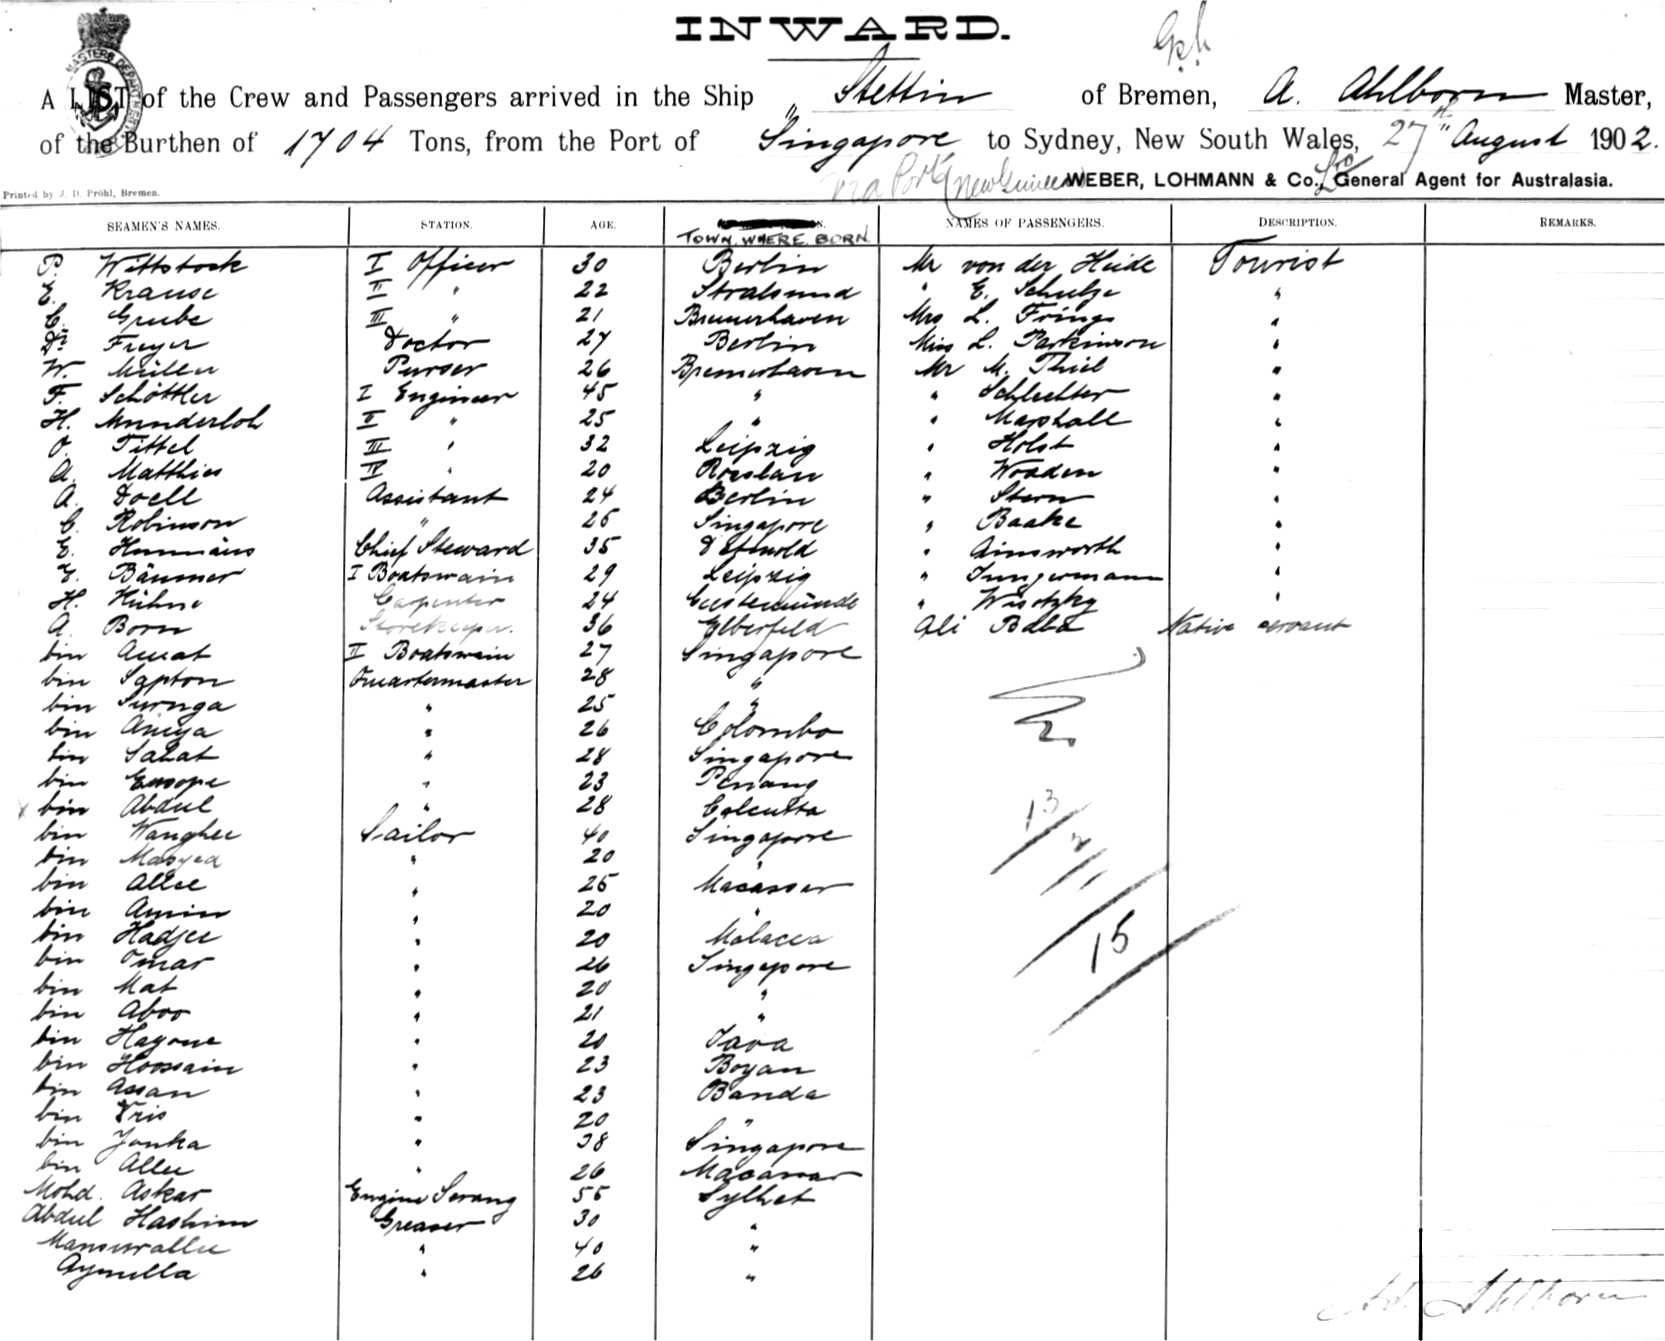 INWARD.
MASTERS DEPARTMENT
A LIST of the Crew and Passengers arrived in the Ship „ Stettin of Bremen, A. Ahlborn Master,
of the Burthen of 1704 Tons, from the Port of Singapore to Sydney, New South Wales, 27th August 1902.
via Ports (New Guinea)
WEBER, LOHMANN & Co., Ltd General Agent for Australasia.
Printed by J. D. Pröhl, Bremen.
SEAMEN'S NAMES. STATION. AGE. TOWN WHERE BORN NAMES OF PASSENGERS. DESCRIPTION. REMARKS.
P. Wittstock I Officer 30 Berlin Mr von der Heide Tourist
E. Krause II " 22 Stralsund " E. Schulze "
C. Grube III " 21 Bremerhaven Mrs L. Frings "
Dr Freyer Doctor 27 Berlin Miss L. Parkinson "
W. Müller Purser 26 Bremerhaven Mr M. Thiel "
F. Schöttler I Engineer 45 " " Schlechter "
H. Munderloh II " 25 " " Marshall "
O. Tittel III " 32 Leipzig " Holst "
A. Matthies IV " 20 Rosslau " Woaden "
A. Doell Assistant 24 Berlin " Stern "
C. Robinson " 25 Singapore " Baake "
E. Chief Steward 35 Detmold " Ainsworth "
E. Bäumer I Boatswain 29 Leipzig " Jungermann "
H. Kühne Carpenter 24 Geestemünde " Wisotzky "
A. Born Storekeeper. 36 Elberfeld Ali Baba Native servant
bin Amat II Boatswain 27 Singapore
bin Sapton Quartermaster 28 "
bin Surnga " 25 "
bin Amya " 26 Colombo
bin Salat " 28 Singapore
bin Europe " 23 Penang
bin Abdul " 28 Calcutta
bin Wanghee Sailor 40 Singapore
bin Masyed " 20 "
bin Allee " 25 Macassar
bin Amin " 20 "
bin Hadjee " 20 Malacca
bin Omar " 26 Singapore
bin Mat " 20 "
bin Aboo " 21 "
bin Hayone " 20 Java
bin Hoossain " 23 Boyan
bin Assan " 23 Banda
bin Dris " 20 "
bin Jonka " 38 Singapore
bin Allee " 26 Macassar
Mohd. Askar Engine Serang 55 Sylhet
Abdul Hashim Greaser 30 "
Mansurallee " 40 "
Aymulla " 26 "
13
2
15
Ad. Ahlborn